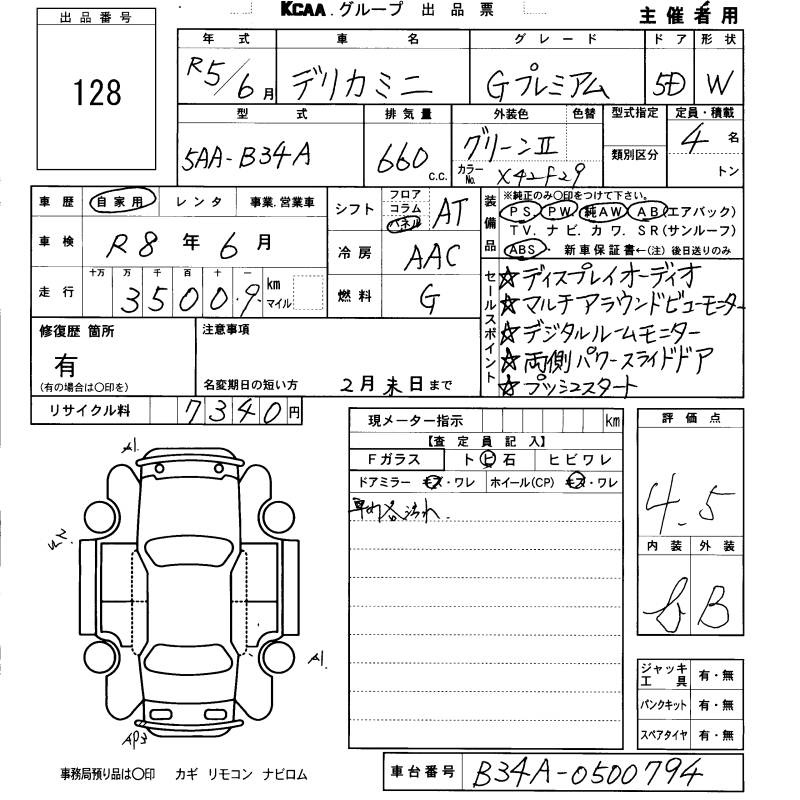 KCAA.グループ 出品票
主催者用
出品番号
128
年式 車名 グレード ドア 形状
R5/6月 デリカミニ Gプレミアム 5D W
型式 排気量 外装色 色替 型式指定 定員・積載
5AA-B34A 660 c.c. グリーンⅡ カラーNo. X42F29 類別区分 4名 トン
車歴 自家用 レンタ 事業.営業車
シフト フロア コラム パネル AT
装備品 ※純正のみ○印をつけて下さい。
PS. PW. 純AW. AB(エアバック)
TV. ナビ. カワ. SR(サンルーフ)
ABS. 新車保証書←(注)後日送りのみ
車検 R8年6月
冷房 AAC
走行 十万 万 千 百 十 一 km マイル
3500.9
燃料 G
セールスポイント
☆ディスプレイオーディオ
☆マルチアラウンドビューモニター
☆デジタルルームモニター
☆両側パワースライドドア
☆プッシュスタート
修復歴 箇所 注意事項
有
(有の場合は○印を) 名変期日の短い方 2月末日まで
リサイクル料 7340円
現メーター指示 km
【査定員記入】
Fガラス トビ石 ヒビワレ
ドアミラー キズ・ワレ ホイール(CP) キズ・ワレ
評価点
4.5
内装 外装
b B
A1.
A1.
AP3
ジャッキ工具 有・無
パンクキット 有・無
スペアタイヤ 有・無
事務局預り品は○印 カギ リモコン ナビロム
車台番号 B34A-0500794